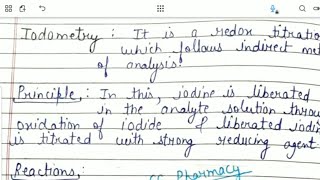 Iodometry : It is a redox titration
which follows indirect met
of analysis.
Principle : In this, iodine is liberated
in the analyte solution throu
oxidation of iodide & liberated iodin
is titrated with strong reducing agent
Reactions :
Pharmacy